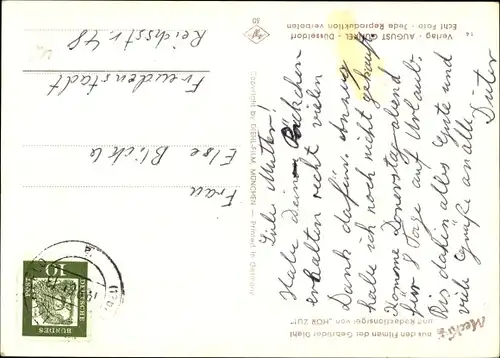 Liebe Mutter!
Habe Dein Päckchen
erhalten recht vielen
Dank dafür. Anzug
habe ich noch nicht gekauft
Komme Donerstag abend
für 8 Tage auf Urlaub.
Bis dahin alles Gute und
viele Grüße an alle
Dieter
Frau
Else Blickle
Freudenstadt
Reichsstr. 48
aus den Filmen der Gebrüder Diehl
und Redaktionsigel von „HÖR ZU!"
Mecki
Copyright by DIEHL-FILM, MÜNCHEN — Printed in Germany
Verlag · AUGUST GUNKEL · Düsseldorf
Echt Foto · Jede Reproduktion verboten
14
50
10
DEUTSCHE
BUNDES
POST